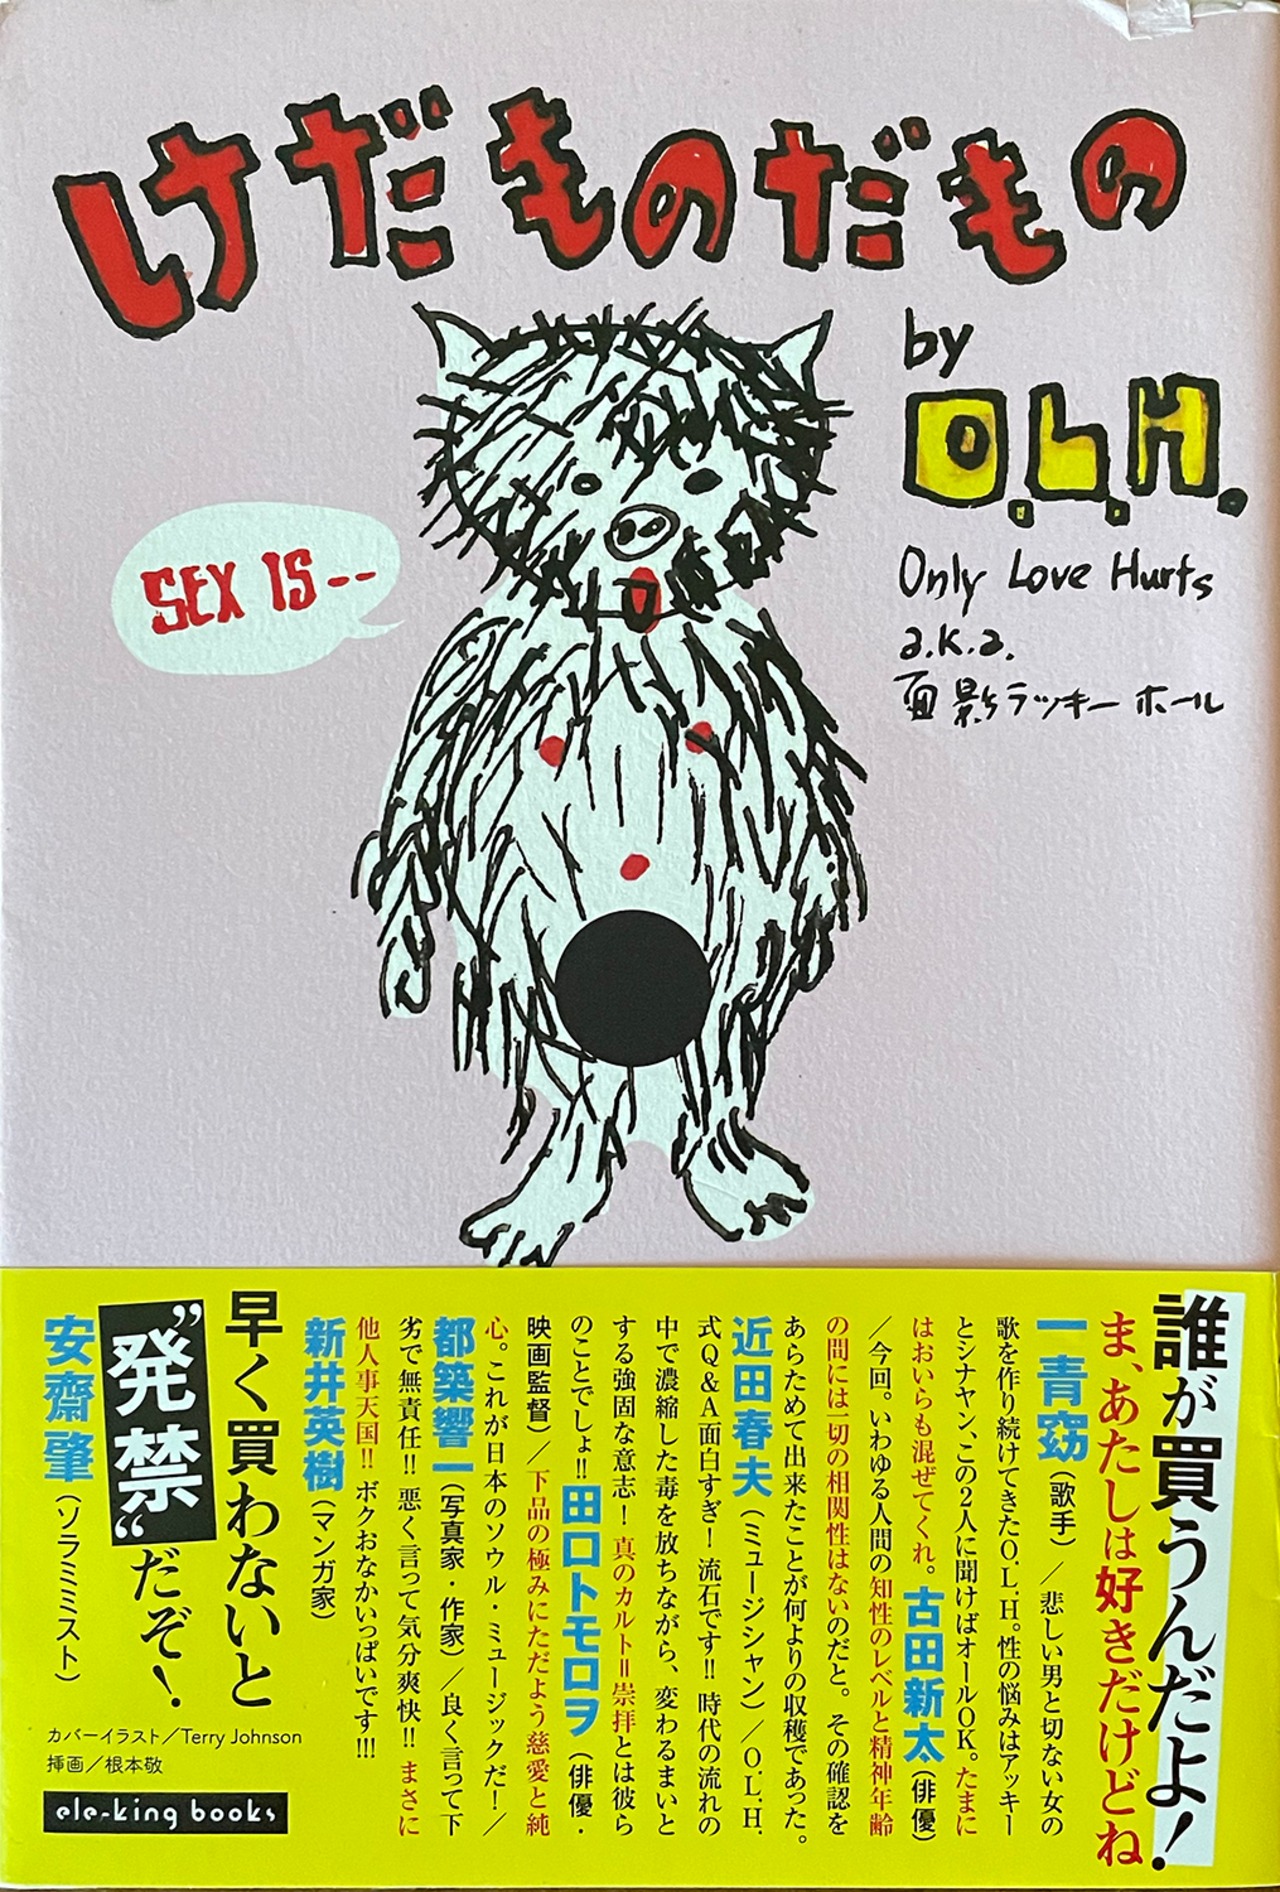 けだものだもの
by
O.L.H.
Only Love Hurts
a.k.a.
面影ラッキーホール
SEX IS--
誰が買うんだよ!
ま、あたしは好きだけどね
一青窈(歌手)/悲しい男と切ない女の
歌を作り続けてきたO.L.H。性の悩みはアッキー
とシナヤン、この2人に聞けばオールOK。たまに
はおいらも混ぜてくれ。古田新太(俳優)
/今回。いわゆる人間の知性のレベルと精神年齢
の間には一切の相関性はないのだと。その確認を
あらためて出来たことが何よりの収穫であった。
近田春夫(ミュージシャン)/O.L.H.
式Q&A面白すぎ!流石です!!時代の流れの
中で濃縮した毒を放ちながら、変わるまいと
する強固な意志!真のカルト=崇拝とは彼ら
のことでしょ!!田口トモロヲ(俳優・
映画監督)/下品の極みにただよう慈愛と純
心。これが日本のソウル・ミュージックだ!/
都築響一(写真家・作家)/良く言って下
劣で無責任!!悪く言って気分爽快!!まさに
他人事天国!!ボクおなかいっぱいです!!!
新井英樹(マンガ家)
早く買わないと
”発禁“だぞ!
安齋肇(ソラミミスト)
カバーイラスト/Terry Johnson
挿画/根本敬
ele-king books